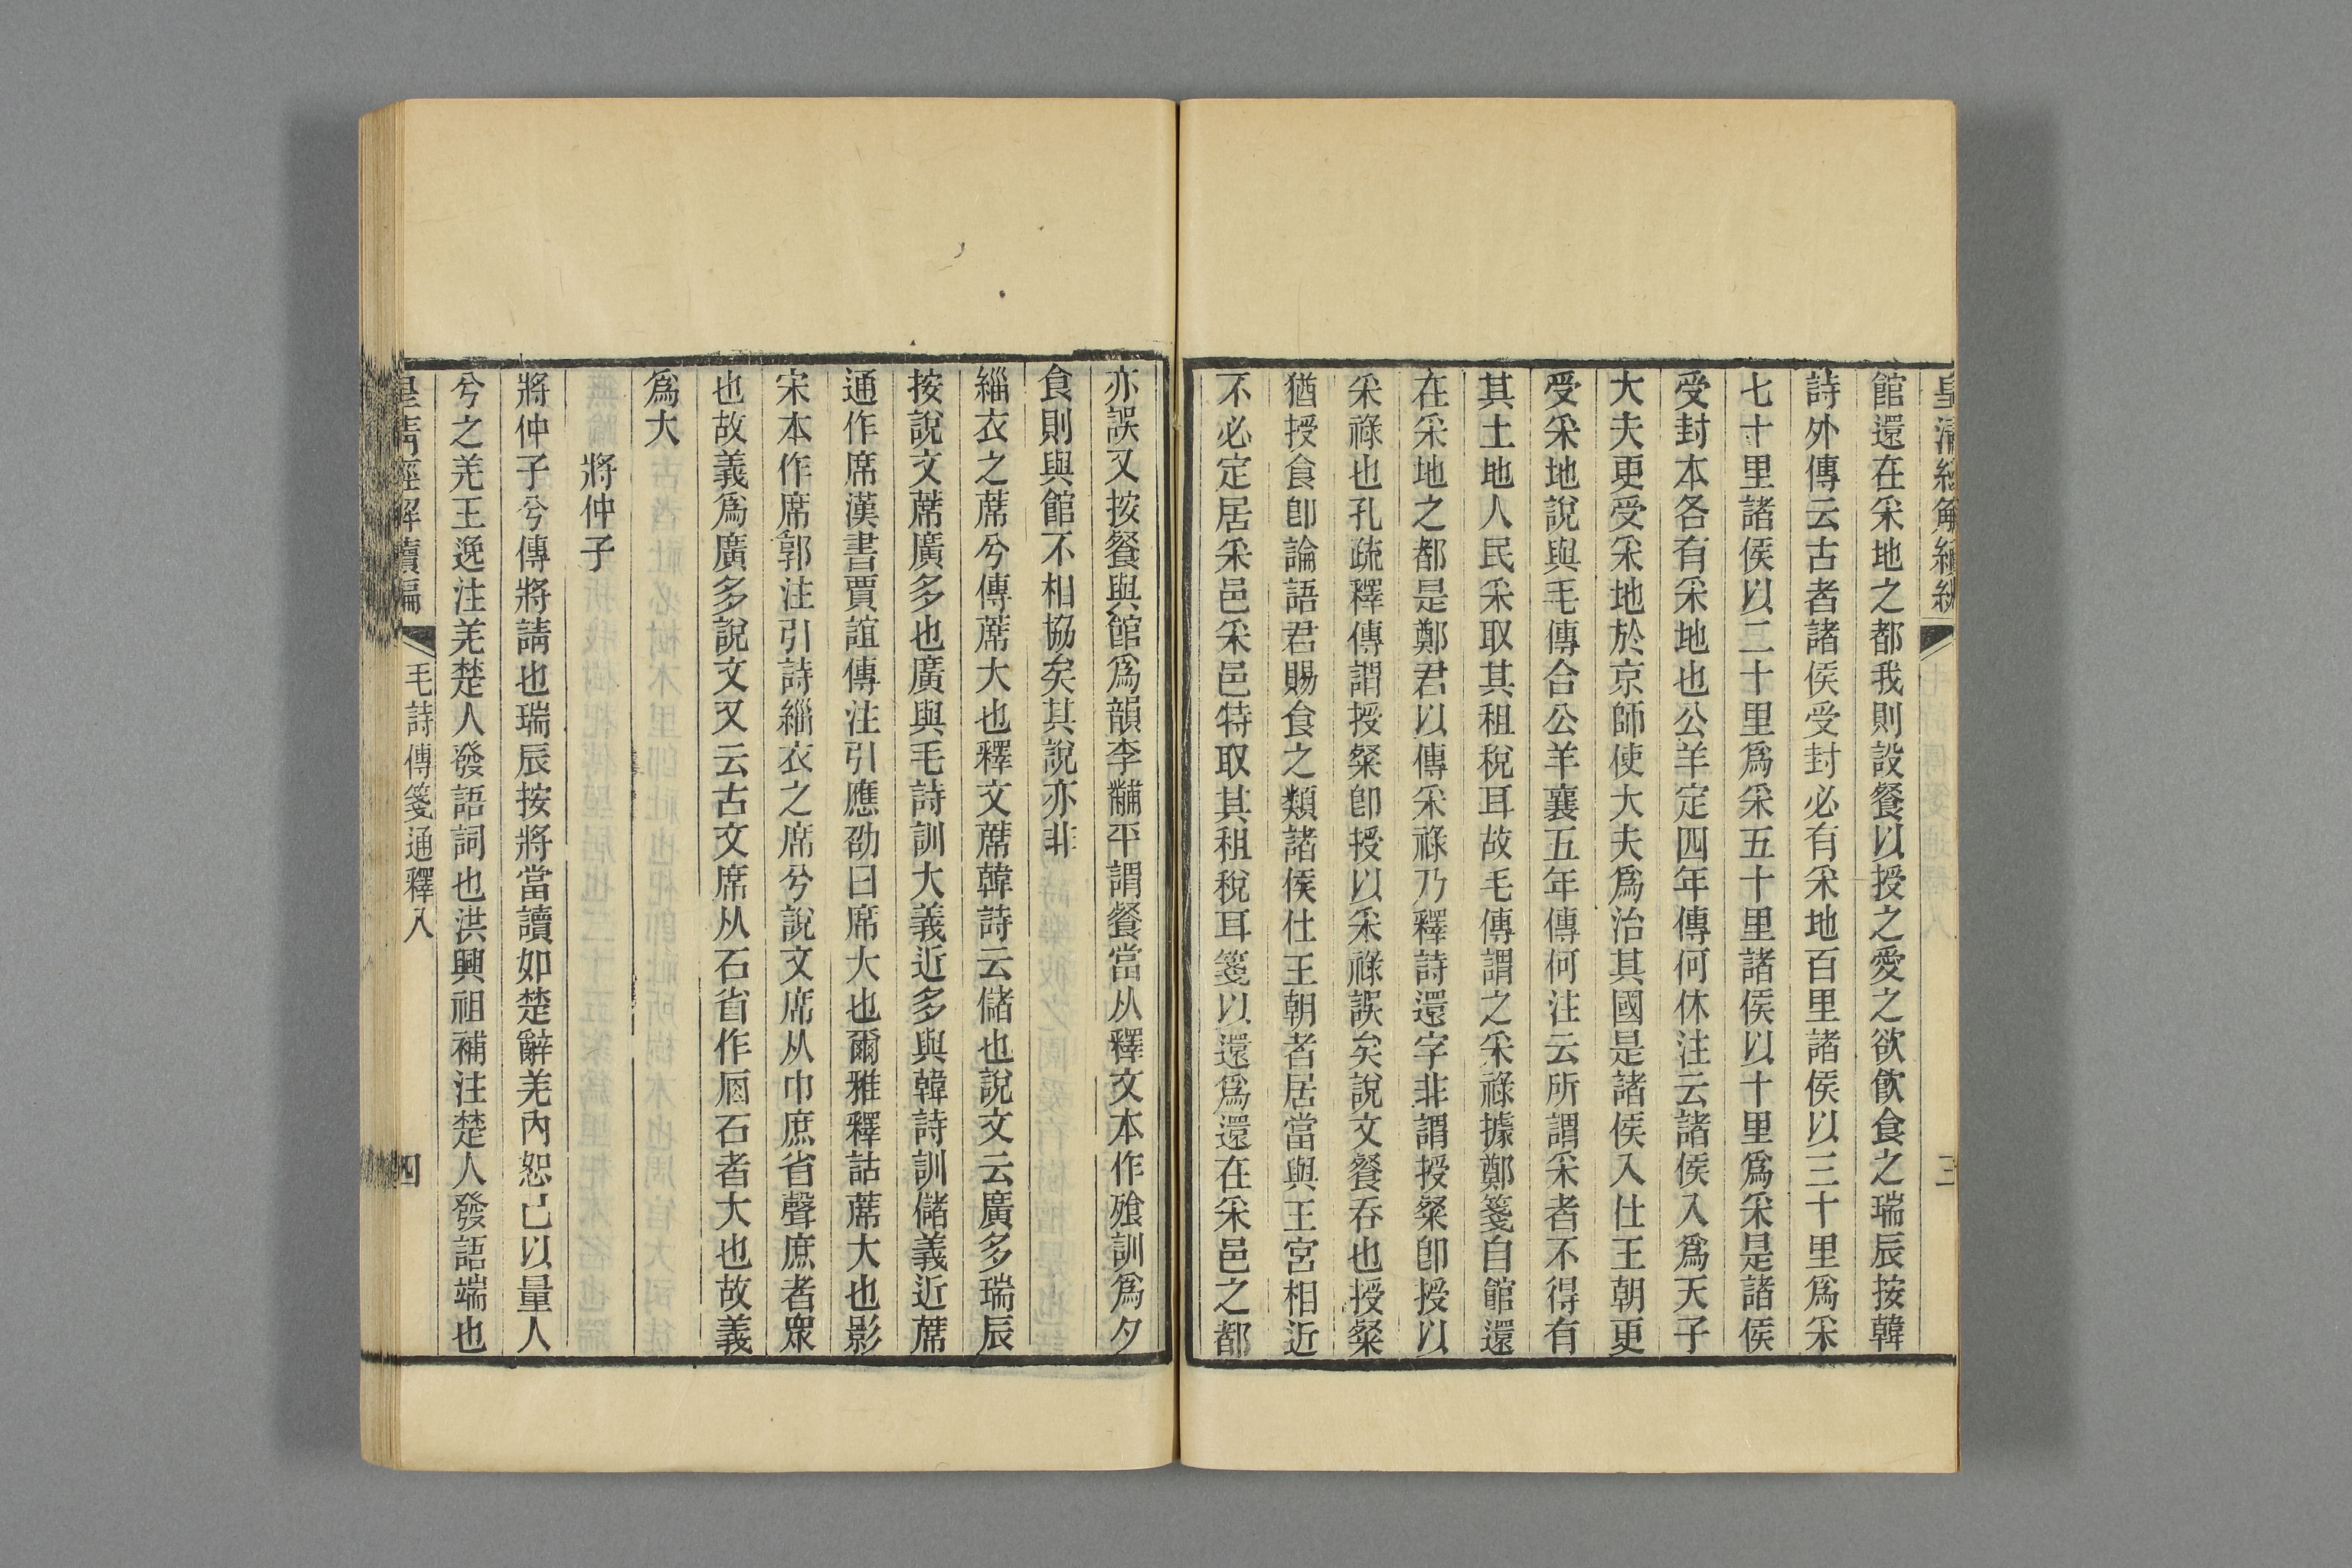 皇清經解續編
三
館還在采地之都我則設餐以授之愛之欲飲食之瑞辰按韓
詩外傳云古者諸侯受封必有采地百里諸侯以三十里爲采
七十里諸侯以二十里爲采五十里諸侯以十里爲采是諸侯
受封本各有采地也公羊定四年傳何休注云諸侯入爲天子
大夫更受采地於京師使大夫爲治其國是諸侯入仕王朝更
受采地說與毛傳合公羊襄五年傳何注云所謂采者不得有
其土地人民采取其租稅耳故毛傳謂之采祿據鄭箋自館還
在采地之都是鄭君以傳采祿乃釋詩還字非謂授粲卽授以
采祿也孔疏釋傳謂授粲卽授以采祿誤矣說文餐吞也授粲
猶授食卽論語君賜食之類諸侯仕王朝者居當與王宮相近
不必定居采邑采邑特取其租稅耳箋以還爲還在采邑之都
亦誤又按餐與館爲韻李黼平謂餐當从釋文本作飱訓爲夕
食則與館不相協矣其說亦非
緇衣之蓆兮傳蓆大也釋文蓆韓詩云儲也說文云廣多瑞辰
按說文蓆廣多也廣與毛詩訓大義近多與韓詩訓儲義近蓆
通作席漢書賈誼傳注引應劭曰席大也爾雅釋詁蓆大也影
宋本作席郭注引詩緇衣之席兮說文席从巾庶省聲庶者衆
也故義爲廣多說文又云古文席从石省作𠩊石者大也故義
爲大
將仲子
將仲子兮傳將請也瑞辰按將當讀如楚辭羌內恕己以量人
兮之羌王逸注羌楚人發語詞也洪興祖補注楚人發語端也
皇清經解續編
毛詩傳箋通釋八
四